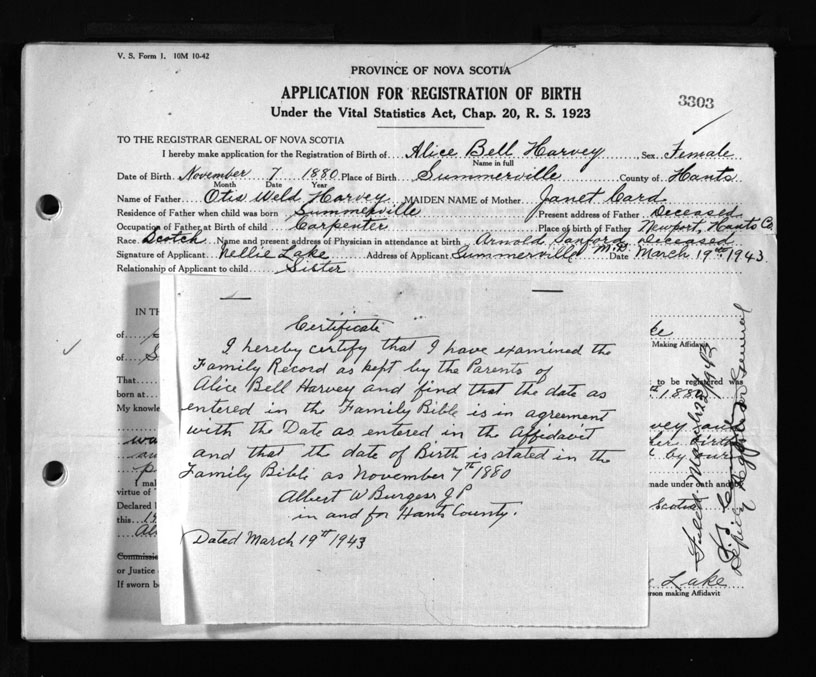 V. S. Form 1. 10M 10-42
PROVINCE OF NOVA SCOTIA
APPLICATION FOR REGISTRATION OF BIRTH
3303
Under the Vital Statistics Act, Chap. 20, R. S. 1923
TO THE REGISTRAR GENERAL OF NOVA SCOTIA
I hereby make application for the Registration of Birth of Alice Bell Harvey Sex Female
Name in full
Date of Birth November 7 1880 Place of Birth Summerville County of Hants
Month Day Year
Name of Father Otis Weld Harvey MAIDEN NAME of Mother Janet Card
Residence of Father when child was born Summerville Present address of Father Deceased
Occupation of Father at Birth of child Carpenter Place of birth of Father Newport, Hants Co
Race Scotch Name and present address of Physician in attendance at birth Arnold Sanford M.D. Deceased
Signature of Applicant Nellie Lake Address of Applicant Summerville Date March 19th 1943
Relationship of Applicant to child Sister
Certificate
I hereby certify that I have examined the
Family Record as kept by the Parents of
Alice Bell Harvey and find that the date as
entered in the Family Bible is in agreement
with the Date as entered in the Affidavit
and that the date of Birth is stated in the
Family Bible as November 7th 1880
Albert W Burgess J P
in and for Hants County.
Dated March 19th 1943
IN TH
of
of S
That
born at
My knowle
wa
mal
virtue of
Declared
this 19
Commissio
or Justice
If sworn be
ke
Making Affidavit
to be registered was
th 1880
vey
birth
by our
made under oath and
Scotia
Lake
person making Affidavit
Filed March 22/1943
Deputy Registrar General